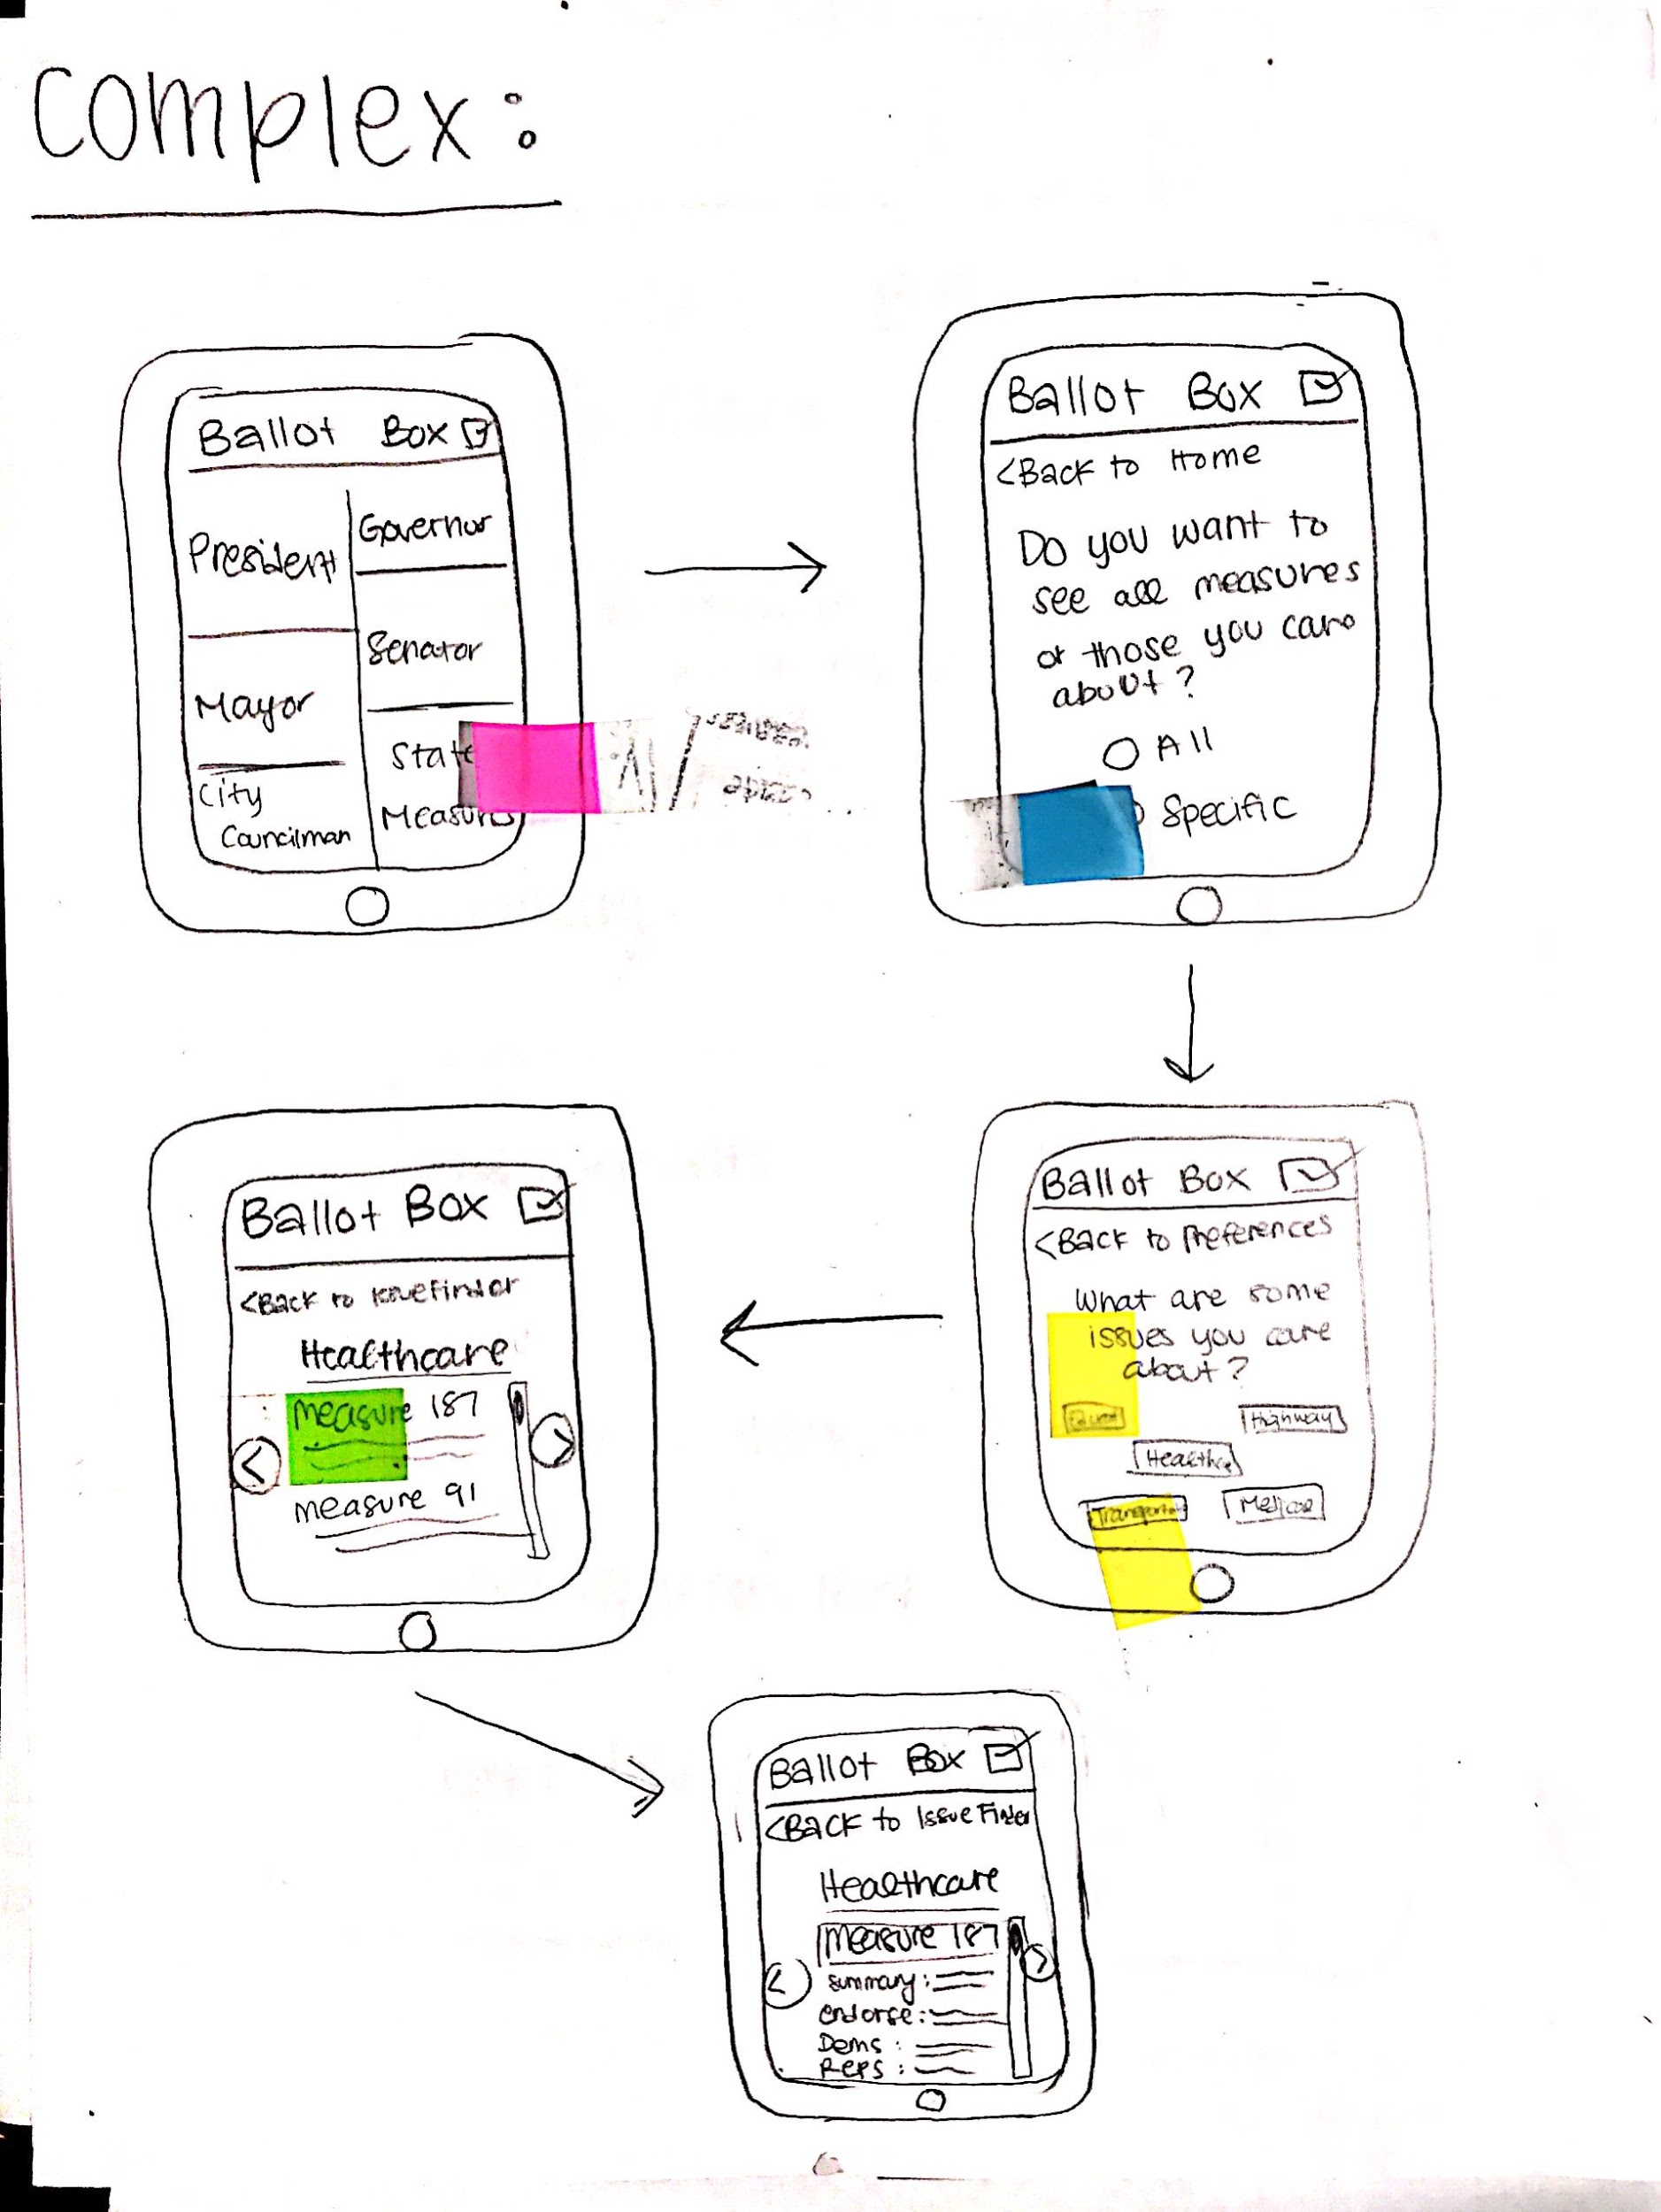 Complex:
Ballot Box
President
Governor
Senator
Mayor
State
Measures
City
Councilman
Ballot Box
<Back to Home
Do you want to
see all measures
or those you care
about?
All
Specific
Ballot Box
<Back to Preferences
What are some
issues you care
about?
Highway
Ballot Box
<Back to Issuefinder
Healthcare
measure 187
measure 91
Ballot Box
<Back to Issue Finder
Healthcare
measure 187
summary:
endorse:
Dems:
Reps: